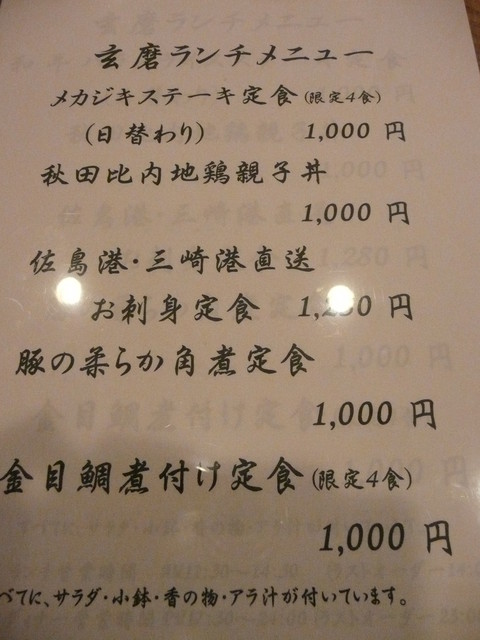 玄磨ランチメニュー
メカジキステーキ定食（限定４食）
（日替わり）　1,000 円
秋田比内地鶏親子丼
1,000 円
佐島港・三崎港直送
お刺身定食　1,280 円
豚の柔らか角煮定食
1,000 円
金目鯛煮付け定食（限定４食）
1,000 円
べてに、サラダ・小鉢・香の物・アラ汁が付いています。